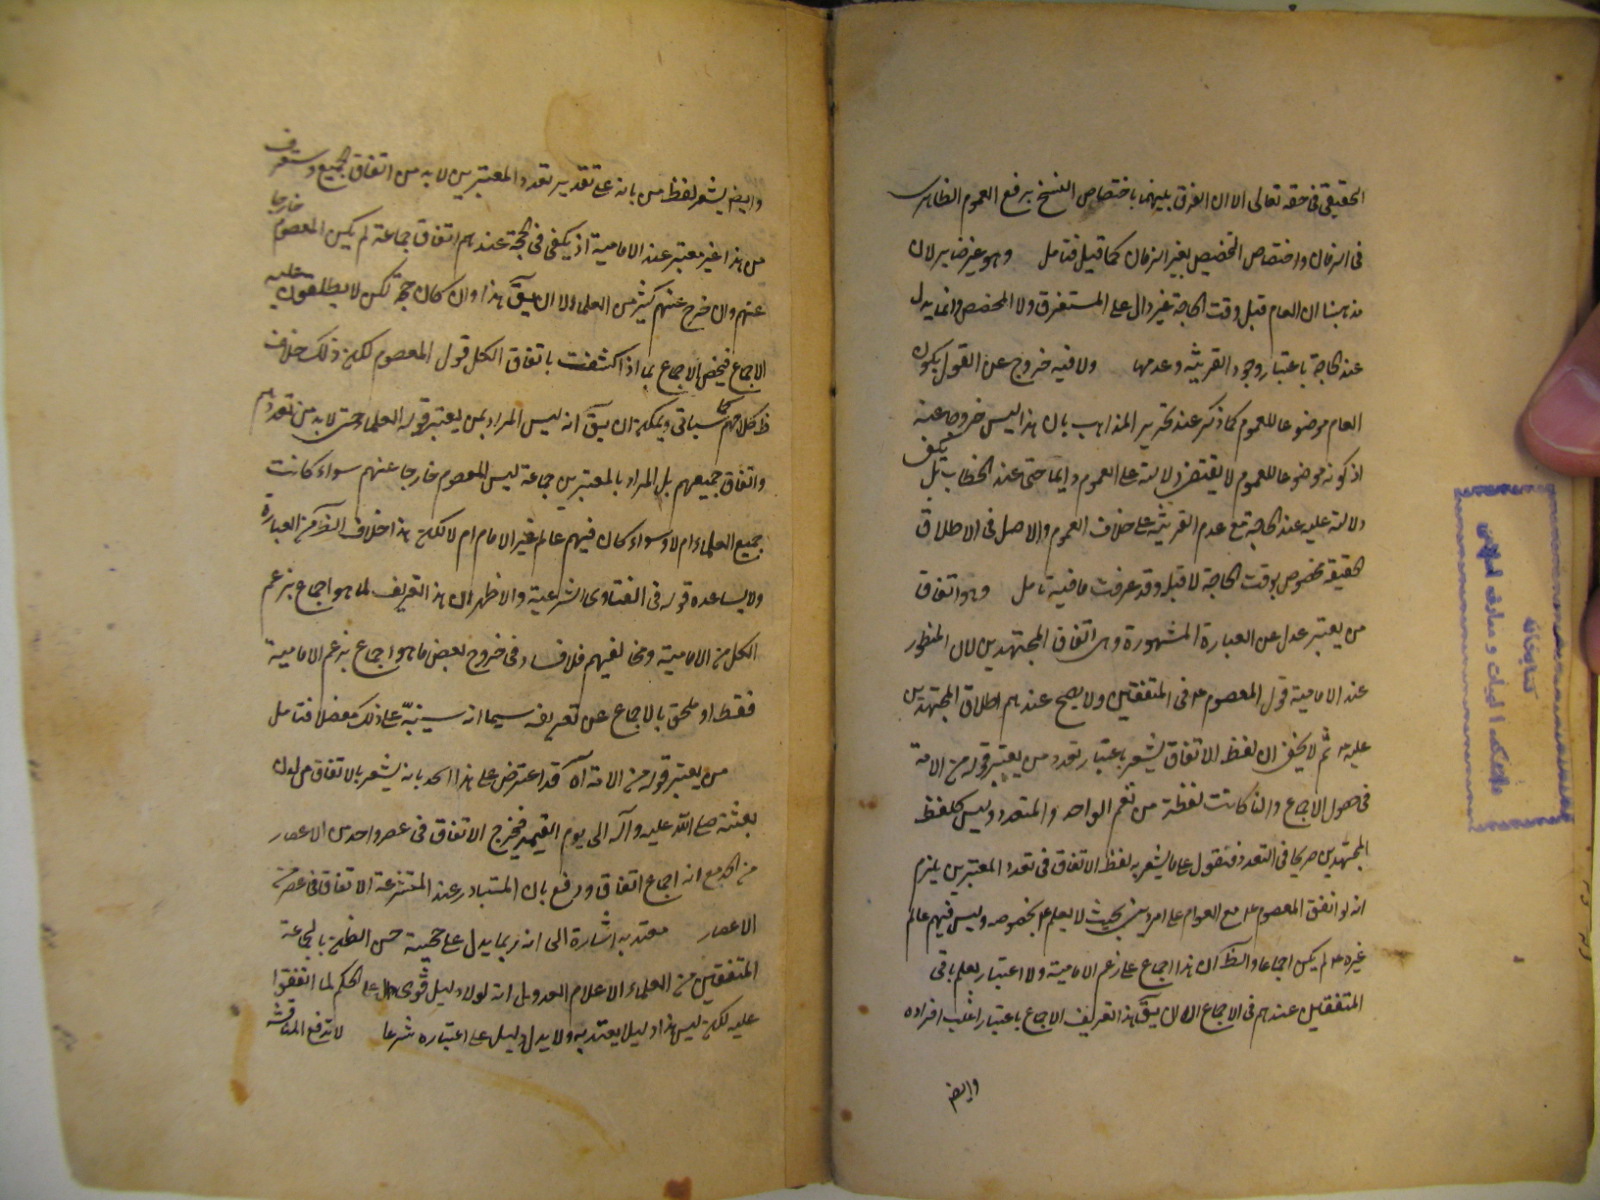 الحقيقي في حقه تعالى الا ان الفرق بينهما باختصاص النسخ برفع العموم الظاهر
في الزمان واختصاص التخصيص بغير الزمان كما قيل فتامل وهو غير ضاير لان
مذهبنا ان العام قبل وقت الحاجة غير دال على المستغرق ولا المخصص وانما يدل
عند الحاجة باعتبار وجود القرينة وعدمها ولا فيه خروج عن القول بكون
العام موضوعا للعموم كما ذكر عند تحرير المذاهب بان هذا ليس خروجا عنه
اذ كونه موضوعا للعموم لا يقتضي دلالته على العموم دايما حتى عند الخطاب بل يكفي
دلالته عليه عند الحاجة مع عدم القرينة على خلاف العموم والاصل في الاطلاق
الحقيقة مخصوص بوقت الحاجة لا قبل وقد عرفت ما فيه تامل وهو اتفاق
من يعتبر عدل عن العبارة المشهورة وهي اتفاق المجتهدين لان المنظور
عند الامامية قول المعصوم ع في المتفقين ولا يصح عندهم اطلاق المجتهدين
عليه ثم لا يخفى ان لفظ الاتفاق يشعر باعتبار تعدد من يعتبر قوله من الامة
في حصول الاجماع وان كانت لفظة من تعم الواحد والمتعدد وليس كلفظ
المجتهدين صريحا في التعدد فنقول على ما يشعر به لفظ الاتفاق في تعدد المعتبرين يلزم
انه لو اتفق المعصوم ع مع العوام على امر ديني بحيث لا يعلم ع بخصوصه وليس فيهم عالم
غيره ع لم يكن اجماعا والظ ان هذا اجماع على زعم الامامية ولا اعتبار بعلم باقي
المتفقين عندهم في الاجماع الا ان يق هذا تعريف الاجماع باعتبار اغلب افراده
وايض
وايض يشعر لفظ من بانه على تقدير تعدد المعتبرين لا بد من اتفاق الجميع وستعرف
من هذا غير معتبر عند الامامية اذ يكفي في الحجة عندهم اتفاق جماعة لم يكن المعصوم خارجا
عنهم وان خرج عنهم كثير من العلماء ولا ان يق هذا وان كان حجة لكن لا يطلقون عليه
الاجماع فيخص الاجماع بما اذا كشفت باتفاق الكل قول المعصوم لكن ذلك خلاف
ظ كلامهم كما سياتي ويمكن ان يق انه ليس المراد بمن يعتبر قوله العلماء حتى لا بد من تعددهم
واتفاق جميعهم بل المراد بالمعتبرين جماعة ليس المعصوم خارجا عنهم سواء كانت
جميع العلماء ام لا وسواء كان فيهم عالم غير الامام ام لا لكن هذا خلاف الظ من العبارة
ولا يساعده قوله في الفتاوى الشرعية والاظهر ان هذا التعريف لما هو اجماع بزعم
الكل من الامامية ومخالفيهم فلا فساد في خروج بعض ما هو اجماع بزعم الامامية
فقط او ملحق بالاجماع عن تعريفه سيما انه سينبه على ذلك مفصلا فتامل
من يعتبر قوله من الامة آه قد اعترض على هذا الحد بانه يشعر بالاتفاق من لدن
بعثته صلى الله عليه وآله الى يوم القيمة فيخرج الاتفاق في عصر واحد من الاعصار
من الحد مع انه اجماع اتفاقا ودفع بان المتبادر عند المتشرعة الاتفاق في عصر من
الاعصار معتد به اشارة الى انه ربما يدل على حجيته حسن الظن بالجماعة
المتفقين من العلماء الاعلام العدول انه لولا دليل قوي دل على الحكم لما اتفقوا
عليه لكن ليس هذا دليلا يعتد به ولا يدل دليل على اعتباره شرعا لا تدفع المناقشة
كتابخانه
دانشكده الهيات و معارف اسلامى